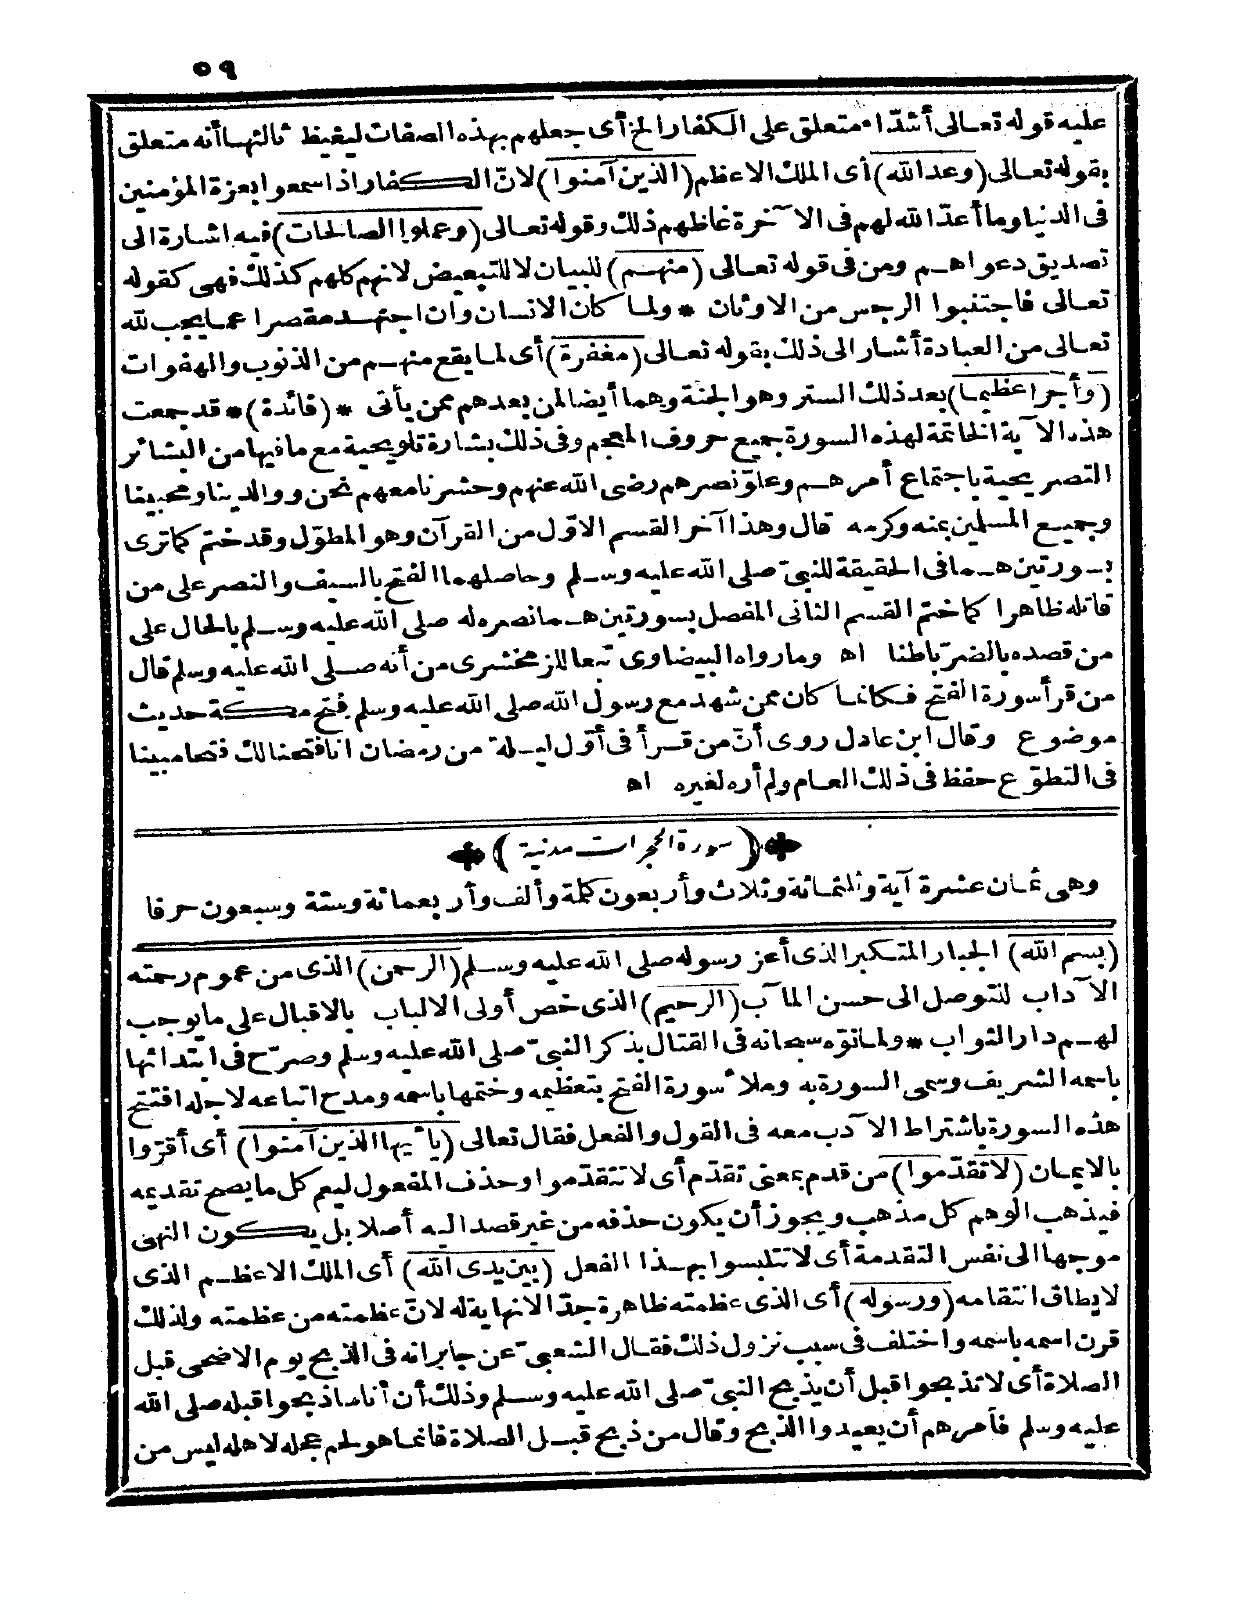 ٥٩
عليه قوله تعالى أشدّاء متعلق على الكفار الخ أى جعلهم بهذه الصفات ليغيظ ثالثها أنه متعلق
بقوله تعالى (وعد الله) أى الملك الاعظم (الذين آمنوا) لانّ الكفار اذا سمعوا بعزة المؤمنين
فى الدنيا وما أعدّ الله لهم فى الآخرة غاظهم ذلك وقوله تعالى (وعملوا الصالحات) فيه اشارة الى
تصديق دعواهم ومن فى قوله تعالى (منهم) للبيان لا للتبعيض لانهم كلهم كذلك فهى كقوله
تعالى فاجتنبوا الرجس من الاوثان * ولما كان الانسان وان اجتهد مقصرا عما يجب لله
تعالى من العبادة أشار الى ذلك بقوله تعالى (مغفرة) أى لما يقع منهم من الذنوب والهفوات
(وأجرا عظيما) بعد ذلك الستر وهو الجنة وهما أيضا لمن بعدهم ممن يأتى * (فائدة) * قد جمعت
هذه الآية الخاتمة لهذه السورة جميع حروف المعجم وفى ذلك بشارة تلويحية مع ما فيها من البشائر
التصريحية باجتماع أمرهم وعلوّ نصرهم رضى الله عنهم وحشرنا معهم نحن ووالدينا ومحبينا
وجميع المسلمين بمنه وكرمه قال وهذا آخر القسم الاوّل من القرآن وهو المطوّل وقد ختم كما ترى
بسورتين هما فى الحقيقة للنبىّ صلى الله عليه وسلم وحاصلهما الفتح بالسيف والنصر على من
قاتله ظاهرا كما ختم القسم الثانى المفصل بسورتين هما نصره له صلى الله عليه وسلم بالحال على
من قصده بالضرّ باطنا اه وما رواه البيضاوى تبعا للزمخشرى من أنه صلى الله عليه وسلم قال
من قرأ سورة الفتح فكانما كان ممن شهد مع رسول الله صلى الله عليه وسلم فتح مكة حديث
موضوع وقال ابن عادل روى أنّ من قرأ فى أوّل ليلة من رمضان انا فتحنا لك فتحا مبينا
فى التطوّع حفظ فى ذلك العام ولم أره لغيره اه
(سورة الحجرات مدنية)
وهى ثمان عشرة آية وثلثمائة وثلاث وأربعون كلمة وألف وأربعمائة وستة وسبعون حرفا
(بسم الله) الجبار المتكبر الذى أعز رسوله صلى الله عليه وسلم (الرحمن) الذى من عموم رحمته
الآداب للتوصل الى حسن المآب (الرحيم) الذى خص أولى الالباب بالاقبال على ما يوجب
لهم دار الثواب * ولما نوّه سبحانه فى القتال بذكر النبىّ صلى الله عليه وسلم وصرّح فى ابتدائها
باسمه الشريف وسمى السورة به وملأ سورة الفتح بتعظيمه وختمها باسمه ومدح اتباعه لاجله افتتح
هذه السورة باشتراط الادب معه فى القول والفعل فقال تعالى (يأيها الذين آمنوا) أى أقرّوا
بالايمان (لا تقدّموا) من قدم بمعنى تقدّم أى لا تتقدموا وحذف المفعول ليعم كل ما يصح تقديمه
فيذهب الوهم كل مذهب ويجوز أن يكون حذفه من غير قصد اليه أصلا بل يكون النهى
موجها الى نفس التقدمة أى لا تتلبسوا بهذا الفعل (بين يدى الله) أى الملك الاعظم الذى
لا يطاق انتقامه (ورسوله) أى الذى عظمته ظاهرة جدّا لانهاية له لانّ عظمته من عظمته ولذلك
قرن اسمه باسمه واختلف فى سبب نزول ذلك فقال الشعبىّ عن جابر انه فى الذبح يوم الاضحى قبل
الصلاة أى لا تذبحوا قبل أن يذبح النبىّ صلى الله عليه وسلم وذلك أن أناسا ذبحوا قبله صلى الله
عليه وسلم فأمرهم أن يعيدوا الذبح وقال من ذبح قبل الصلاة فانما هو لحم عجله لاهله ليس من